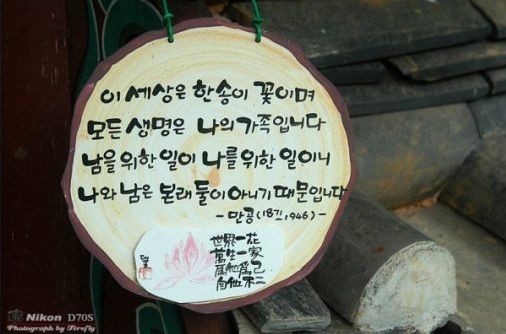 이 세상은 한송이 꽃이며
모든 생명은 나의 가족입니다
남을 위한 일이 나를 위한 일이니
나와 남은 본래 둘이 아니기 때문입니다
世界一花
萬生一家
爲他爲己
自他不二
Nikon D70S
Photograph by Firefly